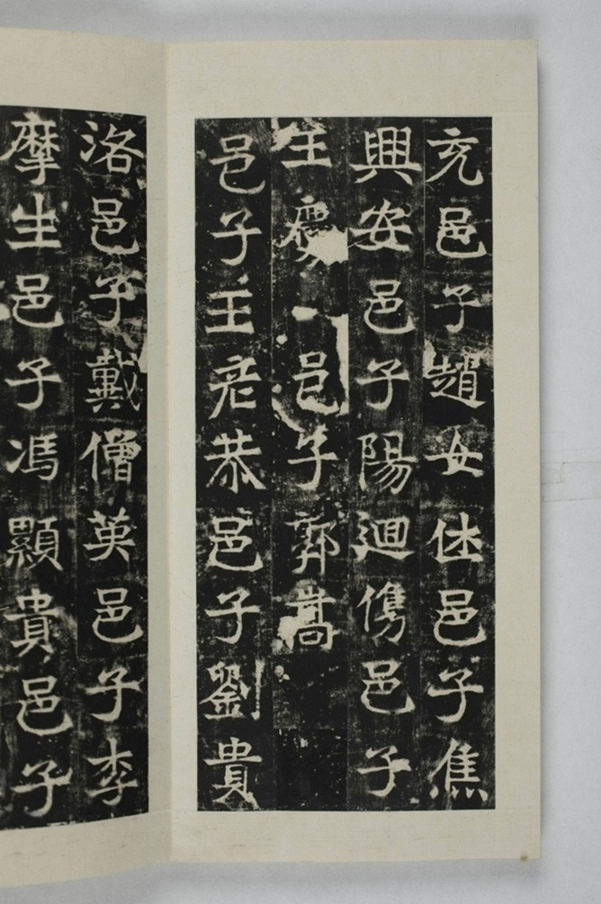 充邑子趙女休邑子焦
興安邑子陽迴儁邑子
王慶一邑子郭蒿
邑子王老恭邑子劉貴
洛邑子戴僧英邑子李
摩生邑子馮顯貴邑子